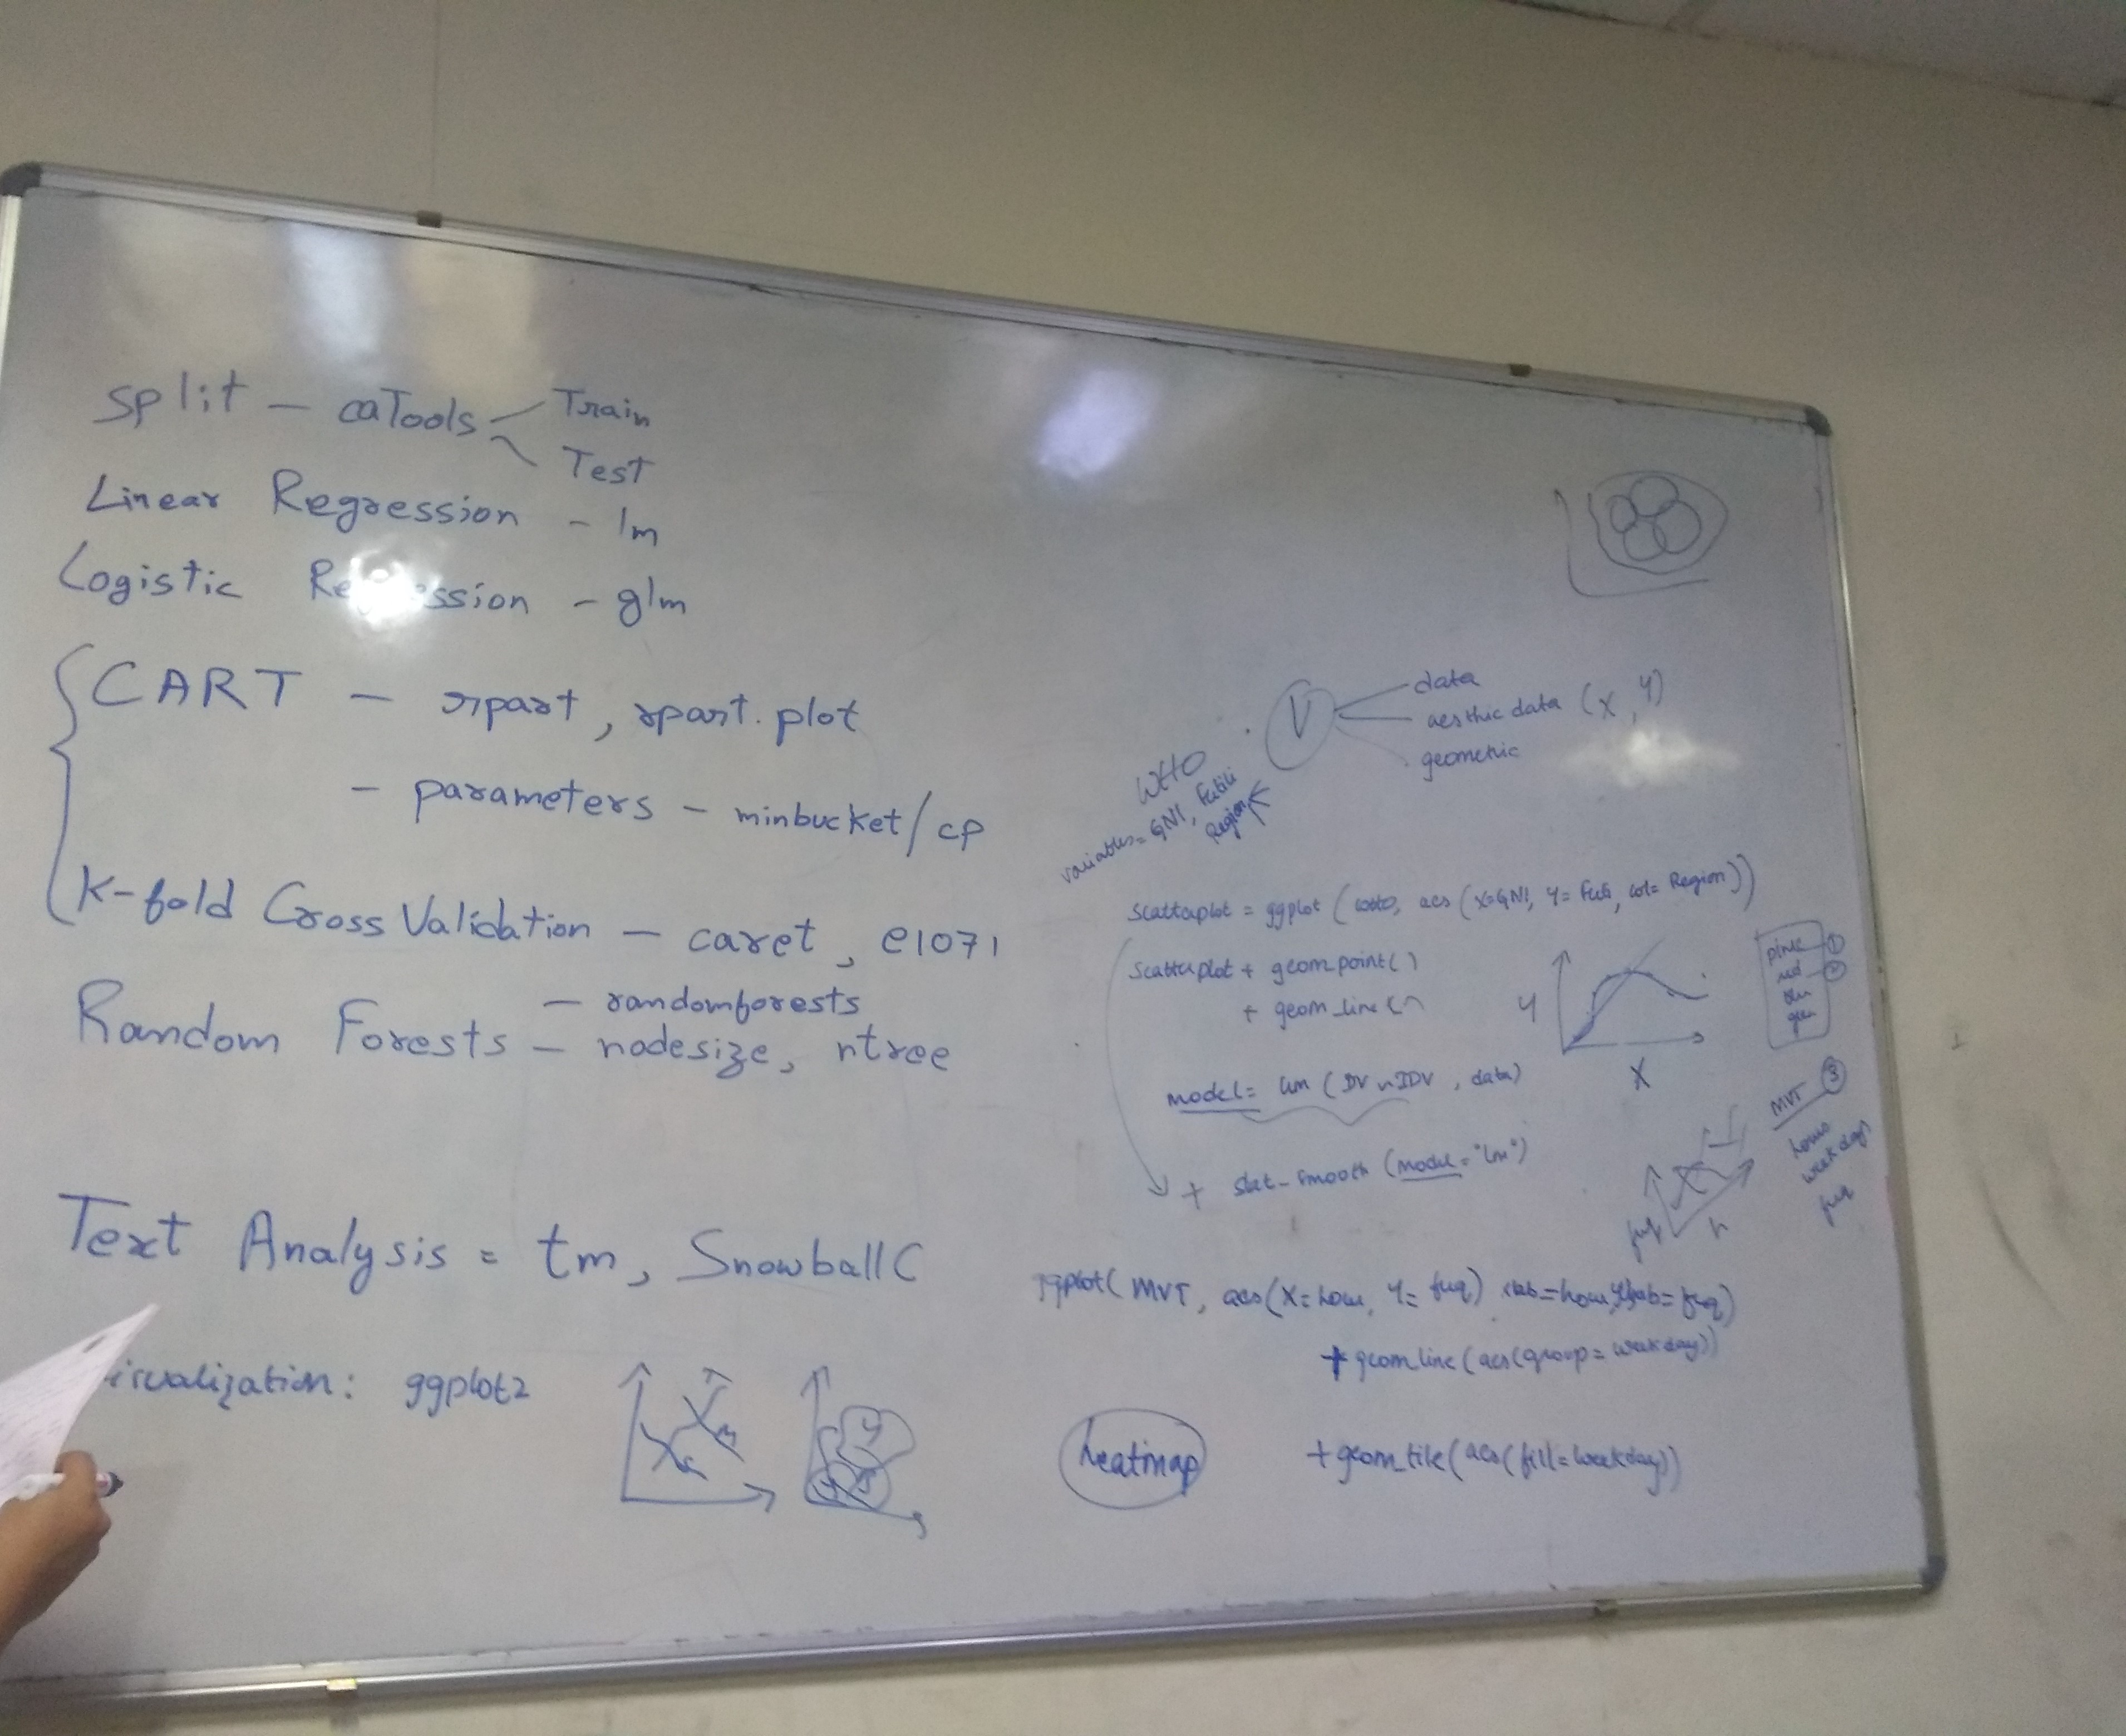 split - caTools Train
Test
Linear Regression - lm
Logistic Regression - glm
CART - rpart, rpart.plot
- parameters - minbucket/cp
K-fold Cross Validation - caret, e1071
- randomforests
Random Forests - nodesize, ntree
Text Analysis = tm, SnowballC
isualization: ggplot2
V
data
aesthic data (x, y)
geometric
WHO
variables = GNI,
Region
scatterplot = ggplot (WHO, aes (x=GNI, y= , col= Region))
scatterplot + geom_point()
+ geom_line()
y
X
model = lm (DV ~ IDV, data)
+ stat_smooth (model = "lm")
red
1
2
3
MVT
hour
weekday
freq
ggplot( MVT, aes(x=hour, y= freq) xlab=hour, ylab= freq)
+ geom_line (aes(group = weekday))
heatmap
+ geom_tile (aes(fill = weekday))